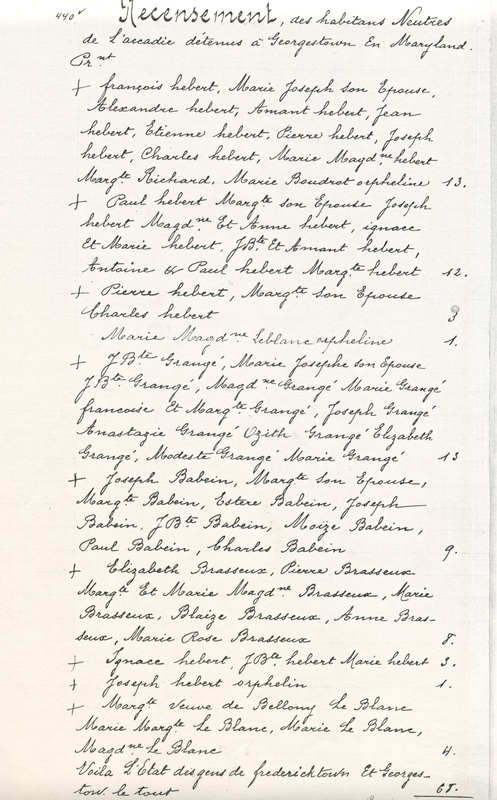 440v Recensement, des habitans Neutres
de L'accadie détenus à Georgestown En Maryland.
Pr nt
+ françois hebert, Marie Joseph son Epouse,
Alexandre hebert, Amant hebert, Jean
hebert, Etienne hebert, Pierre hebert, Joseph
hebert, Charles hebert, Marie Magd.ne hebert
Marg.te Richard, Marie Boudrot orpheline 13.
+ Paul hebert Marg.te son Epouse Joseph
hebert Magd.ne Et Anne hebert, ignace
Et Marie hebert, J.B.te Et Amant hebert,
Antoine & Paul hebert Marg.te hebert 12.
+ Pierre hebert, Marg.te son Epouse
Charles hebert 3
Marie Magd.ne Leblanc orpheline 1.
+ J.B.te Grangé, Marie Josephe son Epouse
J.B.te Grangé, Magd.ne Grangé Marie Grangé
francoise Et Marg.te Grangé, Joseph Grangé
Anastazie Grangé Ozith Grangé Elizabeth
Grangé, Modeste Grangé Marie Grangé 13
+ Joseph Babein, Marg.te son Epouse,
Marg.te Babein, Estere Babein, Joseph
Babein, J.B.te Babein, Moize Babein,
Paul Babein, Charles Babein 9.
+ Elizabeth Brasseux, Pierre Brasseux
Marg.te Et Marie Magd.ne Brasseux, Marie
Brasseux, Blaize Brasseux, Anne Bras-
seux, Marie Rose Brasseux 8.
+ Ignace hebert, J.B.te hebert Marie hebert 3.
+ Joseph hebert orphelin 1.
+ Marg.te veuve de Bellony Le Blanc
Marie Marg.te Le Blanc, Marie Le Blanc,
Magd.ne Le Blanc 4.
Voila L'Etat des gens de fredericktown Et Georges-
tow. le tout 68.